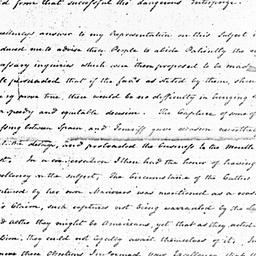 d from that successful tho' dangerous Enterprize.
answer to my Representation on this Subject
duced me to advise these People to abide Patiently the
inquiries which were then proposed to be made
persuaded that if the facts as stated by them, should
prove true, there would be no difficulty in bringing
speedy and equitable decision. The Capture of some of
between Spain and Teneriff gave occasion
and prolonged the business to the Month
In a conversation I then had the honor of having
on the subject. The Circumstance of the Cutters
by her own was mentioned as a
Claim, such captures not being warranted by the Law
as they might be Americans, yet that as they acted
they could not legally avail themselves of it, In
these Objections I informed your Excellency that